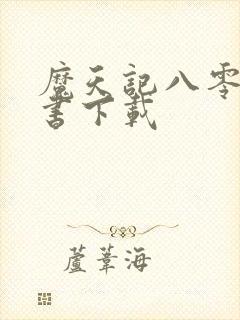 魔天記八零
書下載
蘆葦海